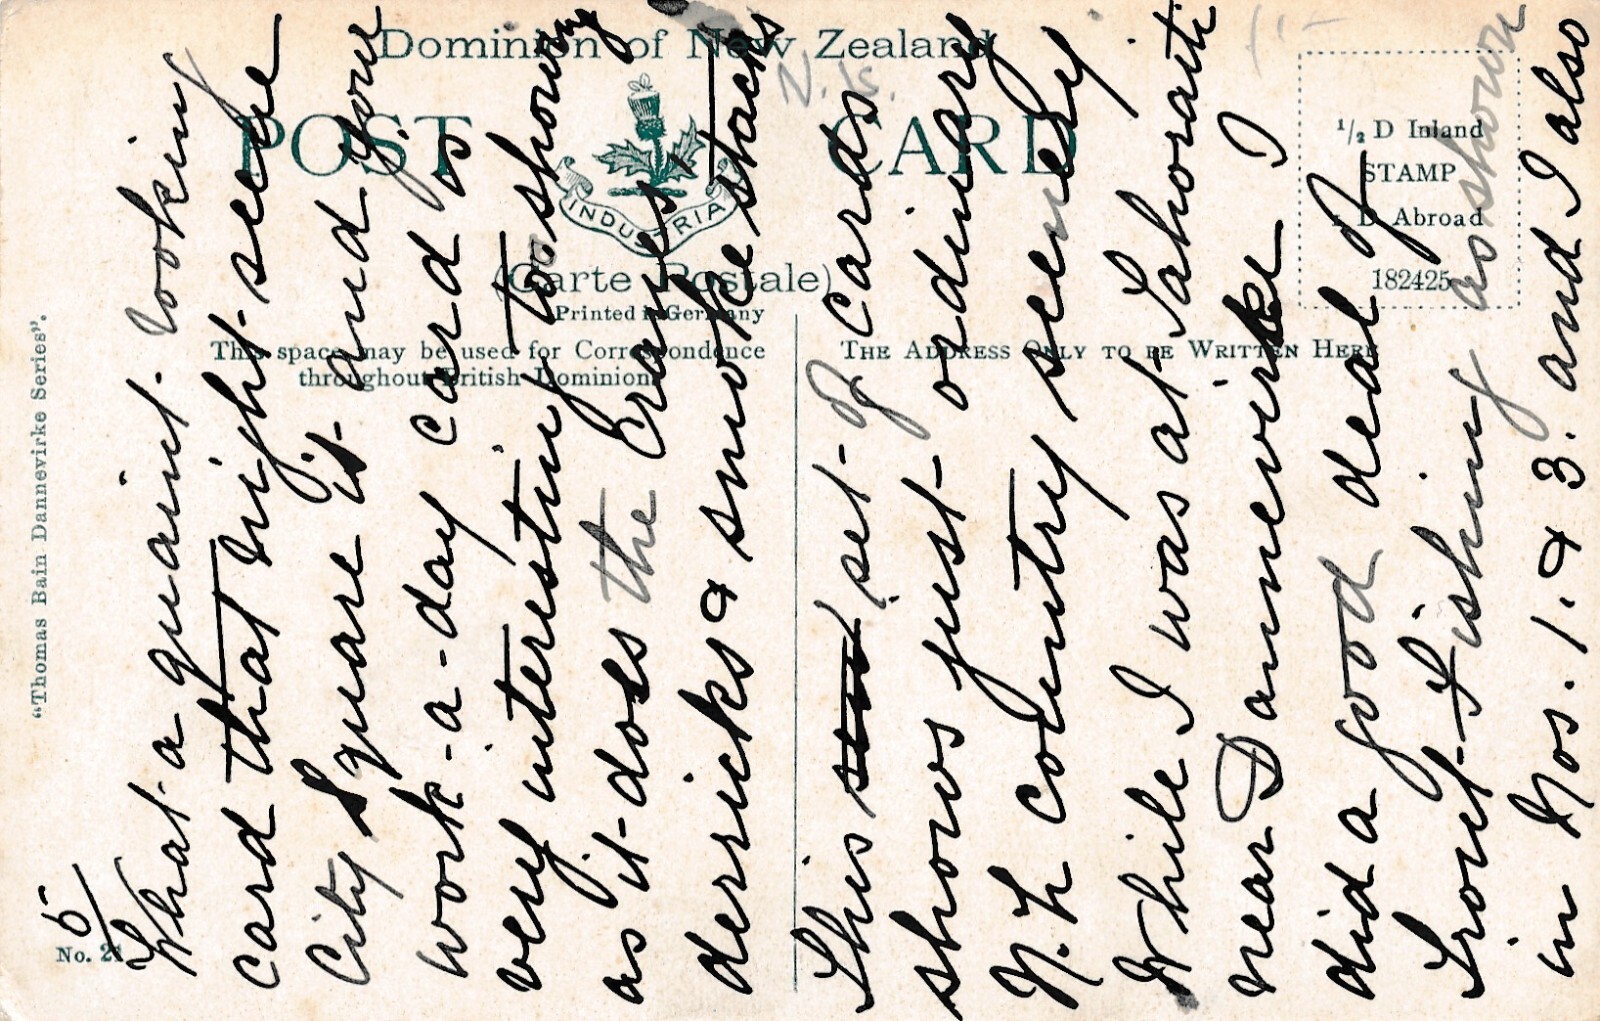 Dominion of New Zealand
N.Z.
POST CARD
INDUSTRIA
(Carte Postale)
Printed in Germany
This space may be used for Correspondence
throughout British Dominions
THE ADDRESS ONLY TO BE WRITTEN HERE
1/2 D Inland
STAMP
1 D Abroad
182425
"Thomas Bain Dannevirke Series".
No. 21
5
What a quaint looking
card that night-scene
City Square is and your
work-a-day card is
very interesting to showing
as it does the Cranes
derricks & smoke stacks
This set of cards
shows just ordinary
N.Z. country scenery
While I was at Tahoraiti
near Dannevirke I
did a good deal of
Trout-Fishing as shown
in Nos. 1. & 3. and I also